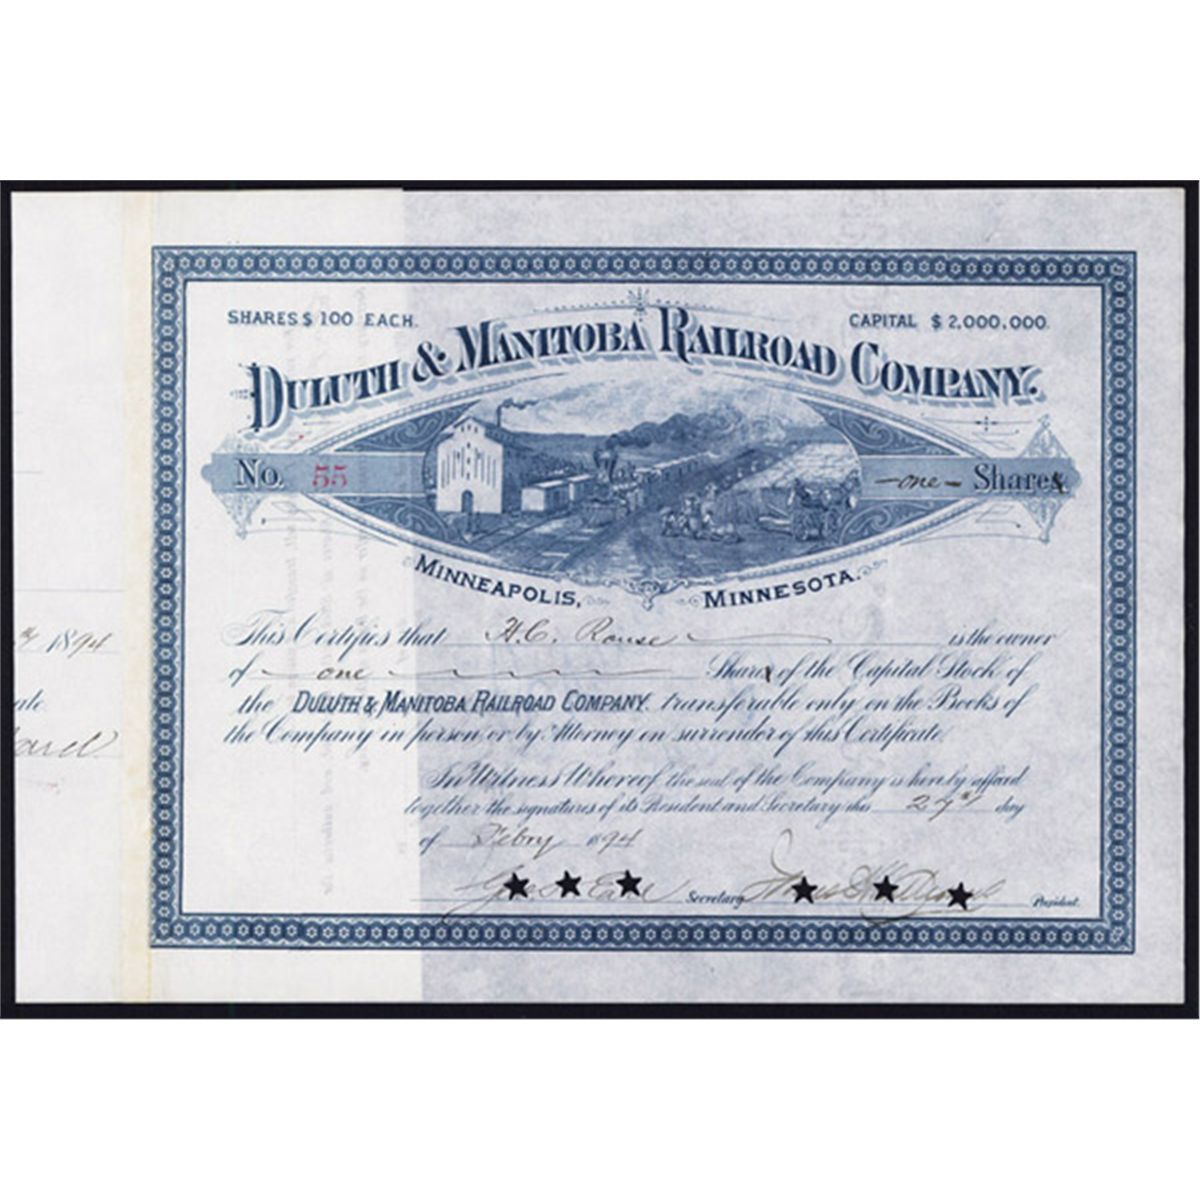 SHARES $ 100 EACH.
CAPITAL $ 2,000,000.
DULUTH & MANITOBA RAILROAD COMPANY.
No. 55
-one- Shares
MINNEAPOLIS, MINNESOTA.
This Certifies that H.C. Rouse is the owner
of one Shares of the Capital Stock of
the DULUTH & MANITOBA RAILROAD COMPANY. transferable only on the Books of
the Company in person or by Attorney on surrender of this Certificate.
In Witness Whereof the seal of the Company is hereby affixed
together the signatures of its President and Secretary this 27th day
of Febry 1894
Geo. Earl Secretary President.
1894